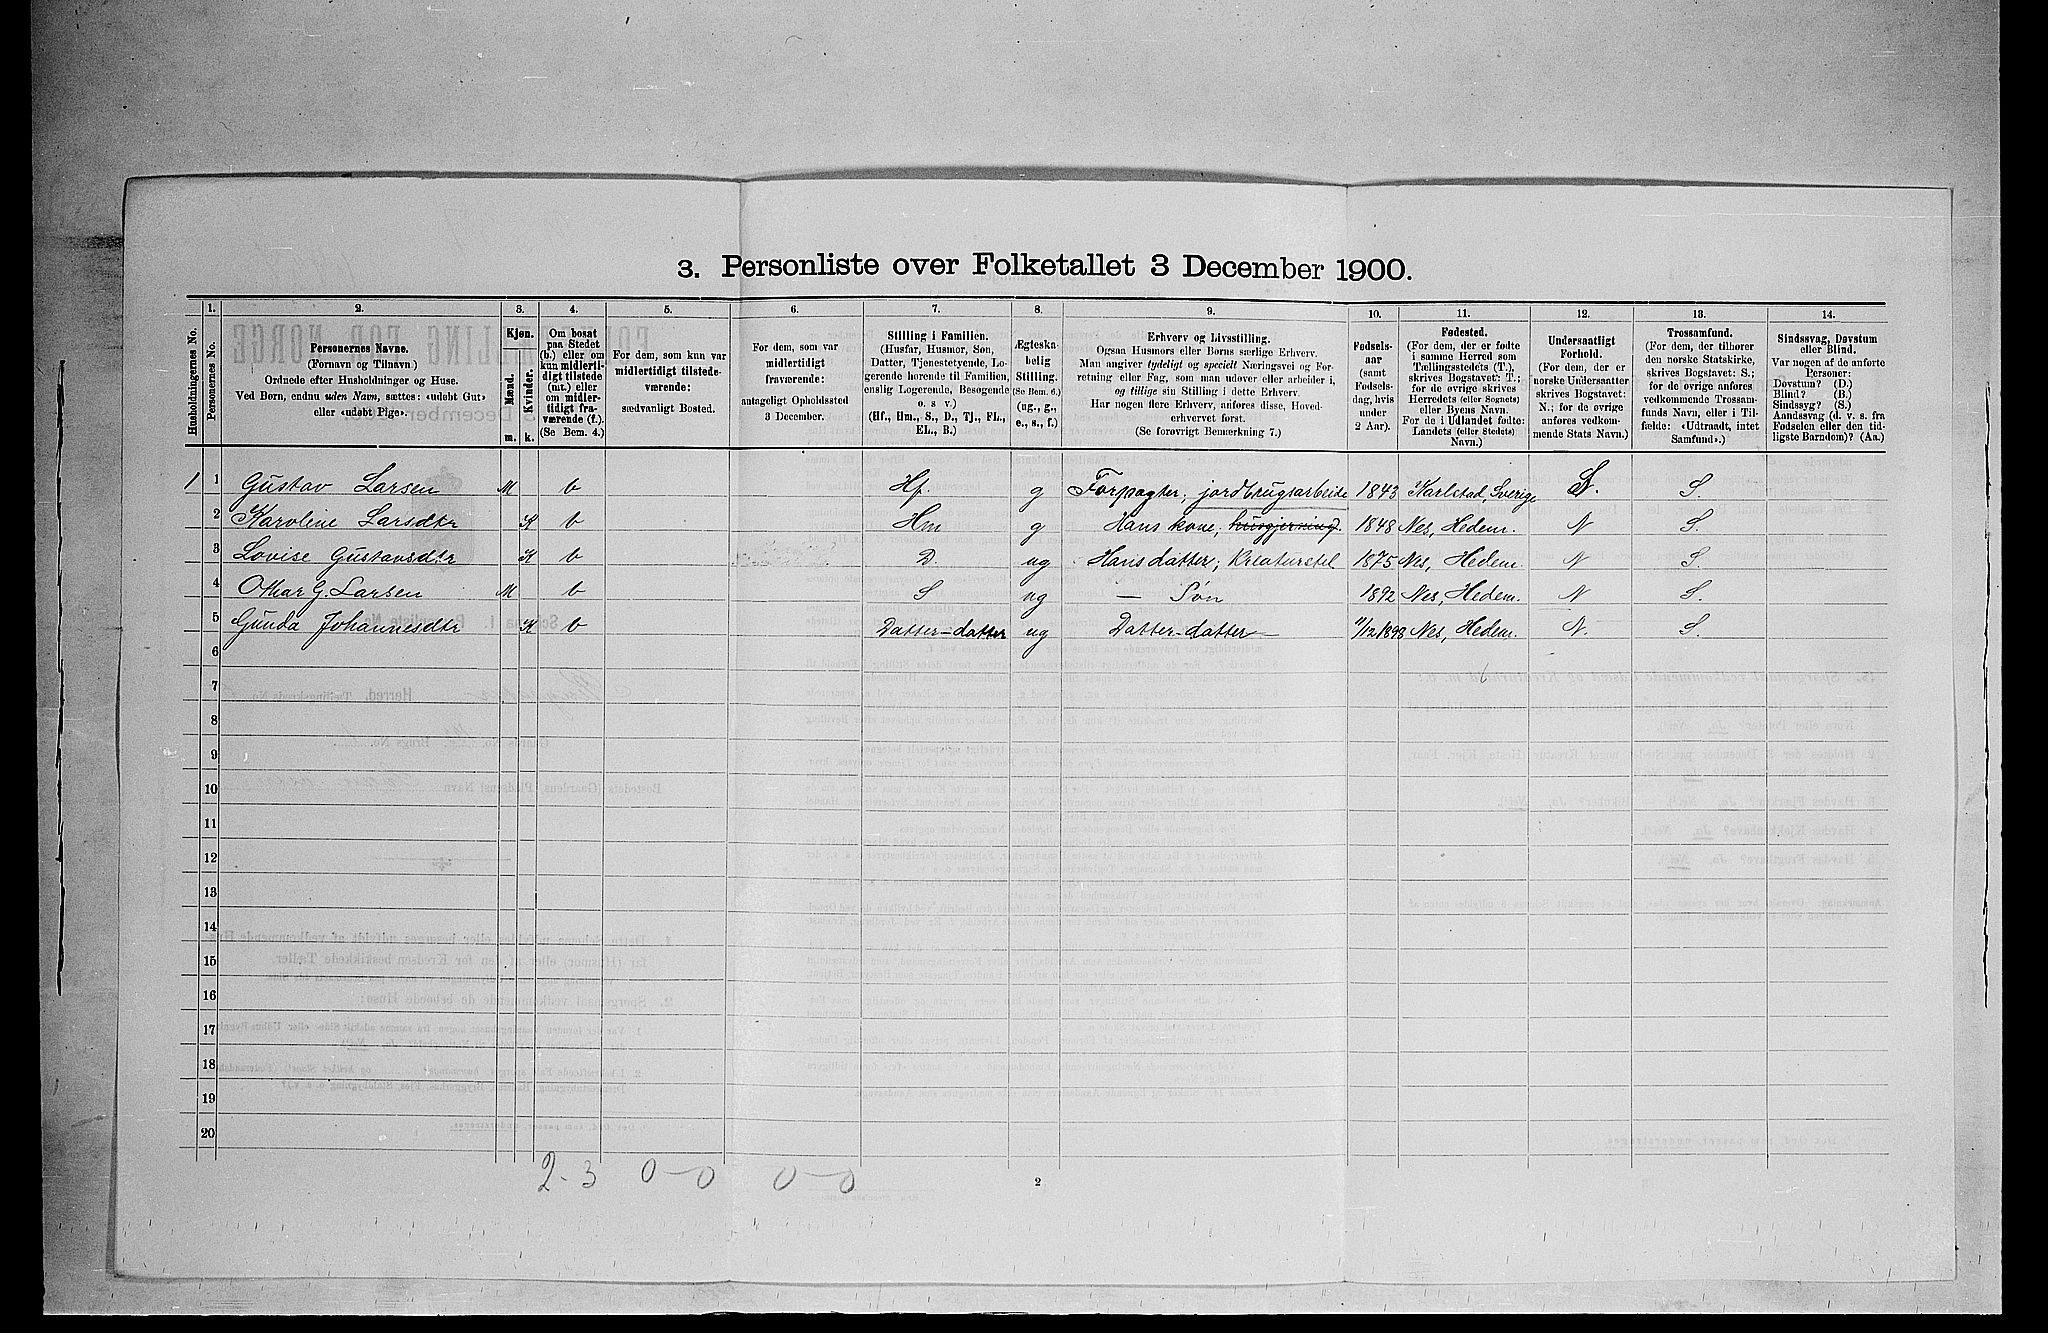 3. Personliste over Folketallet 3 December 1900.
Husholdningernes No.
1.
Personernes No.
2.
Personernes Navne.
(Fornavn og Tilnavn.)
Ordnede efter Husholdninger og Huse.
Ved Børn, endnu uden Navn, sættes: «udøbt Gut»
eller «udøbt Pige».
3.
Kjøn.
Mænd.
Kvinder.
m.
k.
4.
Om bosat
paa Stedet
(b.) eller om
kun midlerti-
digt tilstede
(mt.) eller
om midler-
tidigt fra-
værende (f.).
(Se Bem. 4.)
5.
For dem, som kun var
midlertidigt tilstede-
værende:
sædvanligt Bosted.
6.
For dem, som var
midlertidigt
fraværende:
antageligt Opholdssted
3 December.
7.
Stilling i Familien.
(Husfar, Husmor, Søn,
Datter, Tjenestetyende, Lo-
gerende hørende til Familien,
enslig Logerende, Besøgende
o. s. v.)
(Hf., Hm., S., D., Tj., FL.,
EL., B.)
8.
Ægteska-
belig
Stilling.
(Se Bem. 6.)
(ug., g.,
e., s., f.)
9.
Erhverv og Livsstilling.
Ogsaa Husmors eller Børns særlige Erhverv.
Man angiver tydeligt og specielt Næringsvei og For-
retning eller Fag, som man udøver eller arbeider i,
og tillige sin Stilling i dette Erhverv.
Har nogen flere Erhverv, anføres disse, Hoved-
erhvervet først.
(Se forøvrigt Bemerkning 7.)
10.
Fødsels-
aar
(samt
Fødsels-
dag, hvis
under
2 Aar).
11.
Fødested.
(For dem, der er fødte
i samme Herred som
Tællingsstedets (T.),
skrives Bogstavet: T.;
for de øvrige skrives
Herredets (eller Sognets)
eller Byens Navn.
For de i Udlandet fødte:
Landets (eller Stedets)
Navn.)
12.
Undersaatligt
Forhold.
(For dem, der er
norske Undersaatter
skrives Bogstavet:
N.; for de øvrige
anføres vedkom-
mende Stats Navn.)
13.
Trossamfund.
(For dem, der tilhører
den norske Statskirke,
skrives Bogstavet: S.;
for de øvrige anføres
vedkommende Trossam-
funds Navn, eller i Til-
fælde: «Udtraadt, intet
Samfund».)
14.
Sindssvag, Døvstum
eller Blind.
Var nogen af de anførte
Personer:
Døvstum? (D.)
Blind? (B.)
Sindssyg? (S.)
Aandssvag (d. v. s. fra
Fødselen eller den tid-
ligste Barndom)? (Aa.)
1 1 Gustav Larsen M b Hf. g Forpagter; jordbrugsarbeide 1843 Karlstad, Sverige S.
2 Karoline Larsdtr K b Hm g Hans kone, husgjerning. 1848 Nes, Hedem. N S.
3 Lovise Gustavsdtr K b D. ug Hans datter; Kreaturstel 1875 Nes, Hedem. N S.
4 Othar G. Larsen M b S ug — Søn 1892 Nes, Hedem. N S.
5 Gunda Johannesdtr K b Datter-datter ug Datter-datter 11/12 1898 Nes, Hedem. N. S.
6
7
8
9
10
11
12
13
14
15
16
17
18
19
20
2-3 0-0 0-0
2